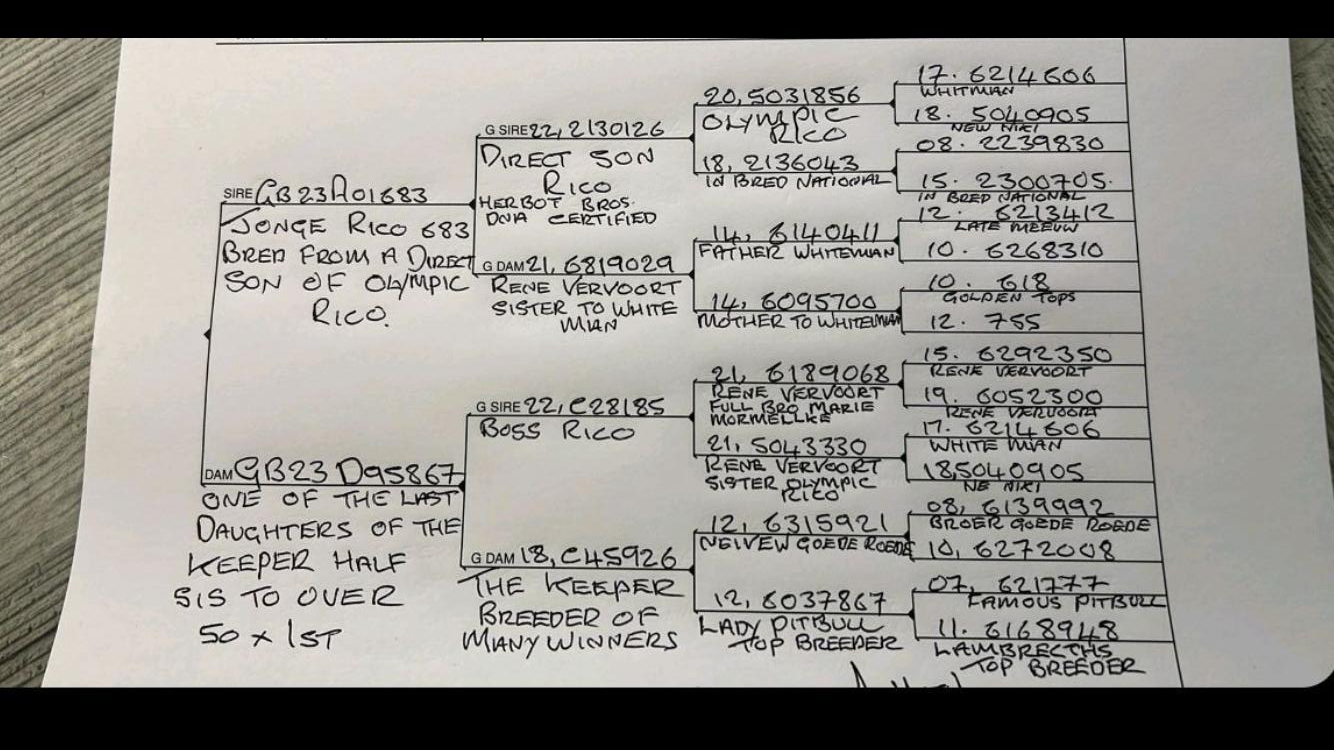 SIRE GB23A01683
JONGE RICO 683
BRED FROM A DIRECT
SON OF OLYMPIC
RICO.
DAM GB23 D95867
ONE OF THE LAST
DAUGHTERS OF THE
KEEPER HALF
SIS TO OVER
50 x 1ST
G SIRE 22, 2130126
DIRECT SON
RICO
HERBOT BROS.
DNA CERTIFIED
G DAM 21, 6819029
RENE VERVOORT
SISTER TO WHITE
MAN
G SIRE 22, C28185
BOSS RICO
G DAM 18, C45926
THE KEEPER
BREEDER OF
MANY WINNERS
20, 5031856
OLYMPIC
RICO
18, 2136043
IN BRED NATIONAL
14, 6140411
FATHER WHITEMAN
14, 6095700
MOTHER TO WHITEMAN
21, 6189068
RENE VERVOORT
FULL BRO MARIE
MORMELLKE
21, 5043330
RENE VERVOORT
SISTER OLYMPIC
RICO
12, 6315921
NEIVEW GOEDE ROEDE
12, 6037867
LADY PITBULL
TOP BREEDER
17. 6214606
WHITMAN
18. 5040905
NEW NIKI
08. 2239830
15. 2300705.
IN BRED NATIONAL
12. 6213412
LATE MEEUW
10. 6268310
10. 618
GOLDEN TOPS
12. 755
15. 6292350
RENE VERVOORT
19. 6052300
RENE VERVOORT
17. 6214606
WHITE MAN
18, 5040905
NE NIKI
08, 6139992
BROER GOEDE ROEDE
10, 6272008
07, 621777
FAMOUS PITBULL
11. 6168948
LAMBRECTHS
TOP BREEDER